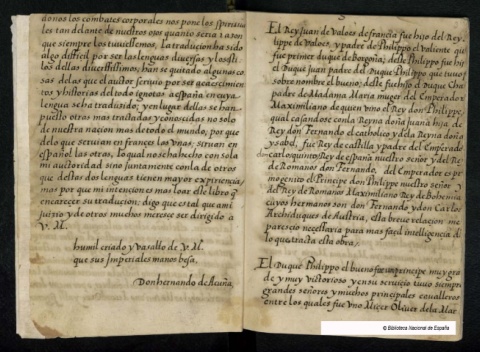 donos los combates corporales nos pone los spiritua
les tan delante de nuestros ojos quanto seria razon
que siempre los tuuiessemos. La traducion ha sido
algo difficil por ser las lenguas diuersas y los esti
los dellas diuersissimos, han se quitado algunas co
sas de las que el auctor seruio por ser acaescimien
tos y historias del todo ignotas a españa en cuya
lengua se ha traduzido; y en lugar dellas se han
puesto otras mas tractadas y conoscidas no solo
de nuestra nacion mas de todo el mundo, por que
delo que seruian en frances las unas, siruan en
español las otras, lo qual no se ha hecho con sola
mi auctoridad sino juntamente con la de otros
que destas dos lenguas tienen mayor experiencia;
mas por que mi intencion es mas loar este libro que
encarescer su traducion, digo que estal que a mi
juizio y de otros muchos meresce ser dirigido a
V. M.
humil criado y vasallo de V. M.
que sus Imperiales manos besa,
Don hernando de Acuña,
El Rey Juan de Valoes de francia fue hijo del Rey
lippe de Valoes, y padre de Philippo el valiente que
fue primer duque de Borgoña; deste Philippo fue hijo
el Duque Juan padre del Duque Philippo que tuuo por
sobre nombre el bueno; deste fue hijo el Duque Char
padre de Madama Maria muger del Emperador
Maximiliano de quien vino el Rey don Philippe,
qual casandose con la Reyna doña juana hija de
Rey don Fernando el catholico y de la Reyna doña
ysabel, fue Rey de castilla y padre del Emperado
don carlo quinto, Rey de españa nuestro señor y del Re
de Romanos don Fernando, del Emperador es pri
mogenito el Principe don Philippe nuestro señor y
del Rey de Romanos Maximiliano Rey de Bohemia
cuyos hermanos son don Fernando y don Carlos
Archiduques de Austria, esta breue relacion me
parescio necessaria para mas facil inteligencia de
lo que tracta esta obra;
El Duque Philippo el bueno fue vn principe muy gra
de y muy victorioso y en su seruicio tuuo siempre
grandes señores y muchos principales caualleros
entre los quales fue vno Miçer Oliuer de la Mar
© Biblioteca Nacional de España